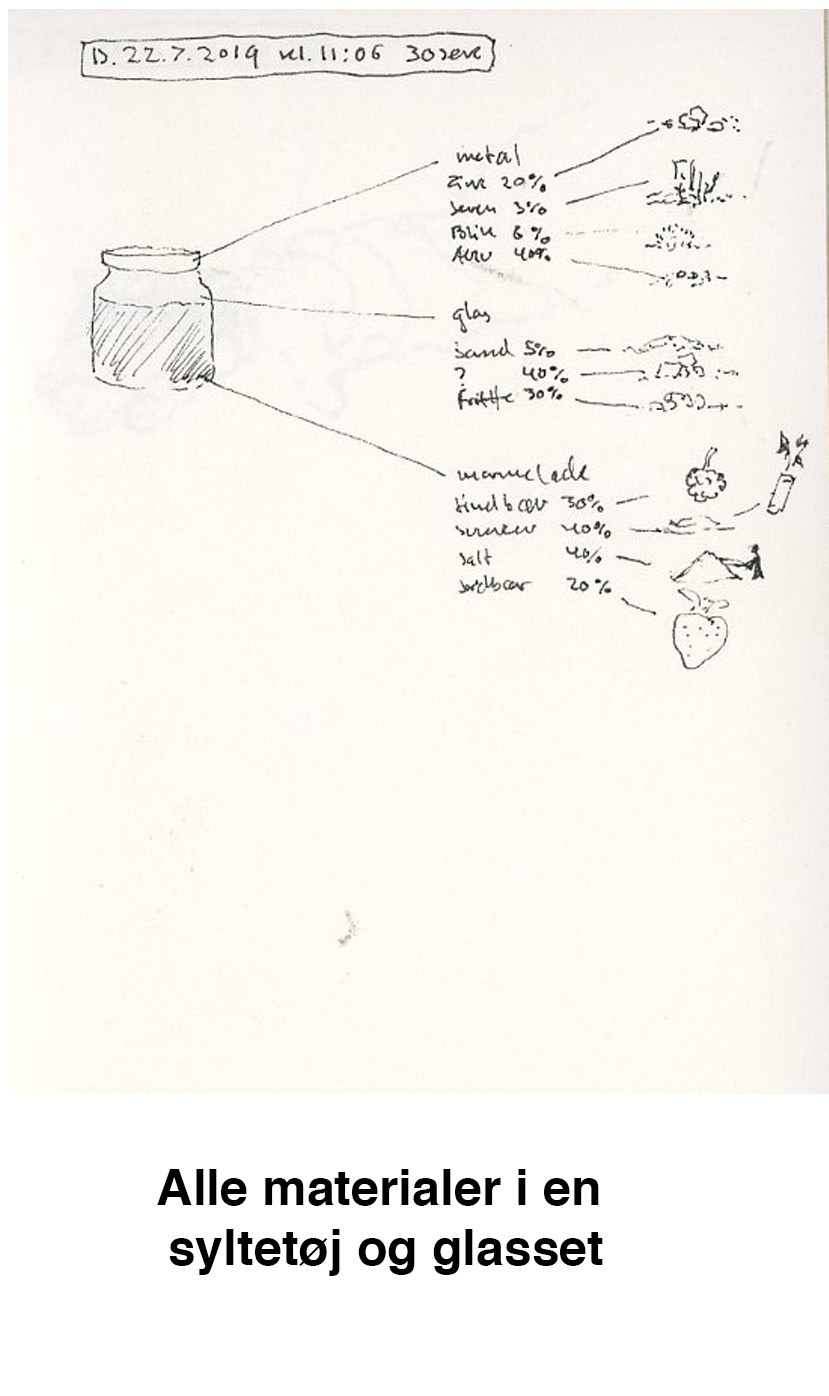 D. 22.7.2019 kl. 11:06 30 sek
metal
Zink 20%
3%
Blik 6%
40%
glas
Sand 5%
? 40%
Fritte 30%
marmelade
hindbær 30%
40%
Salt 40%
jordbær 20%
Alle materialer i en
syltetøj og glasset